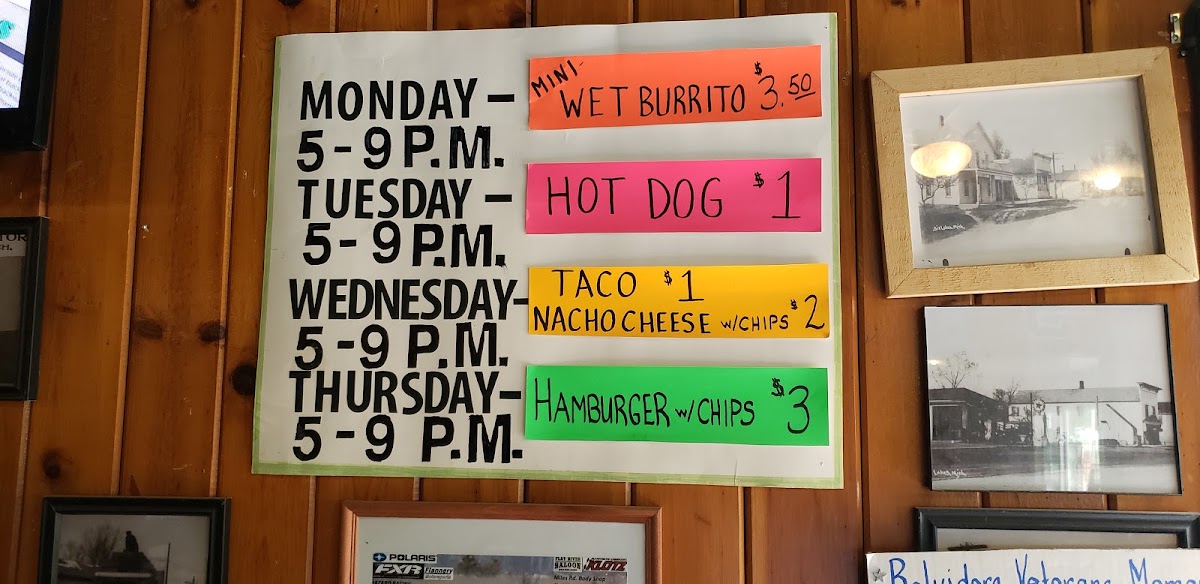 MONDAY –
5 - 9 P.M.
MINI-
WET BURRITO $3.50
TUESDAY –
5 - 9 P.M.
HOT DOG $1
WEDNESDAY-
5 - 9 P.M.
TACO $1
NACHO CHEESE w/CHIPS $2
THURSDAY-
5 - 9 P.M.
HAMBURGER w/CHIPS $3
POLARIS
FXR Flannery
FLAT RIVER
SALOON
KLOTZ
Miles Rd. Body Shop
Belvidere Veteran Mem